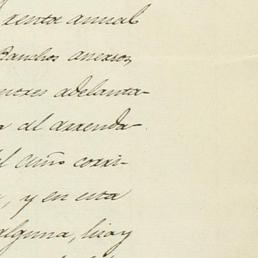 renta annual
Ranchos anexos,
nores adelanta-
a al arrenda
l año corri-
, y en esta
alguna, hoy